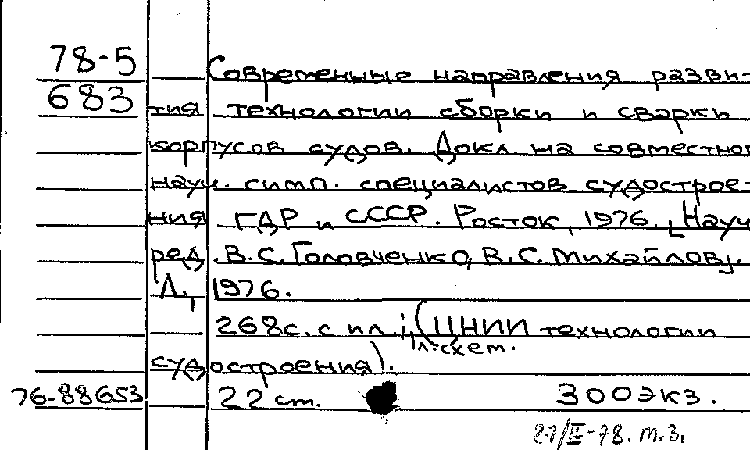 78-5 Современные направления разви-
683 тия технологии сборки и сварки
корпусов судов. Докл. на совместном
науч. симп. специалистов судострое-
ния ГДР и СССР. Росток, 1976. [Науч.
ред. В.С. Головченко, В.С. Михайлов].
Л., 1976.
268с. с ил.; (ЦНИИ технологии
1 л. схем.
судостроения).
76-88653 22 ст. 300экз.
27/IV-78. т.з.